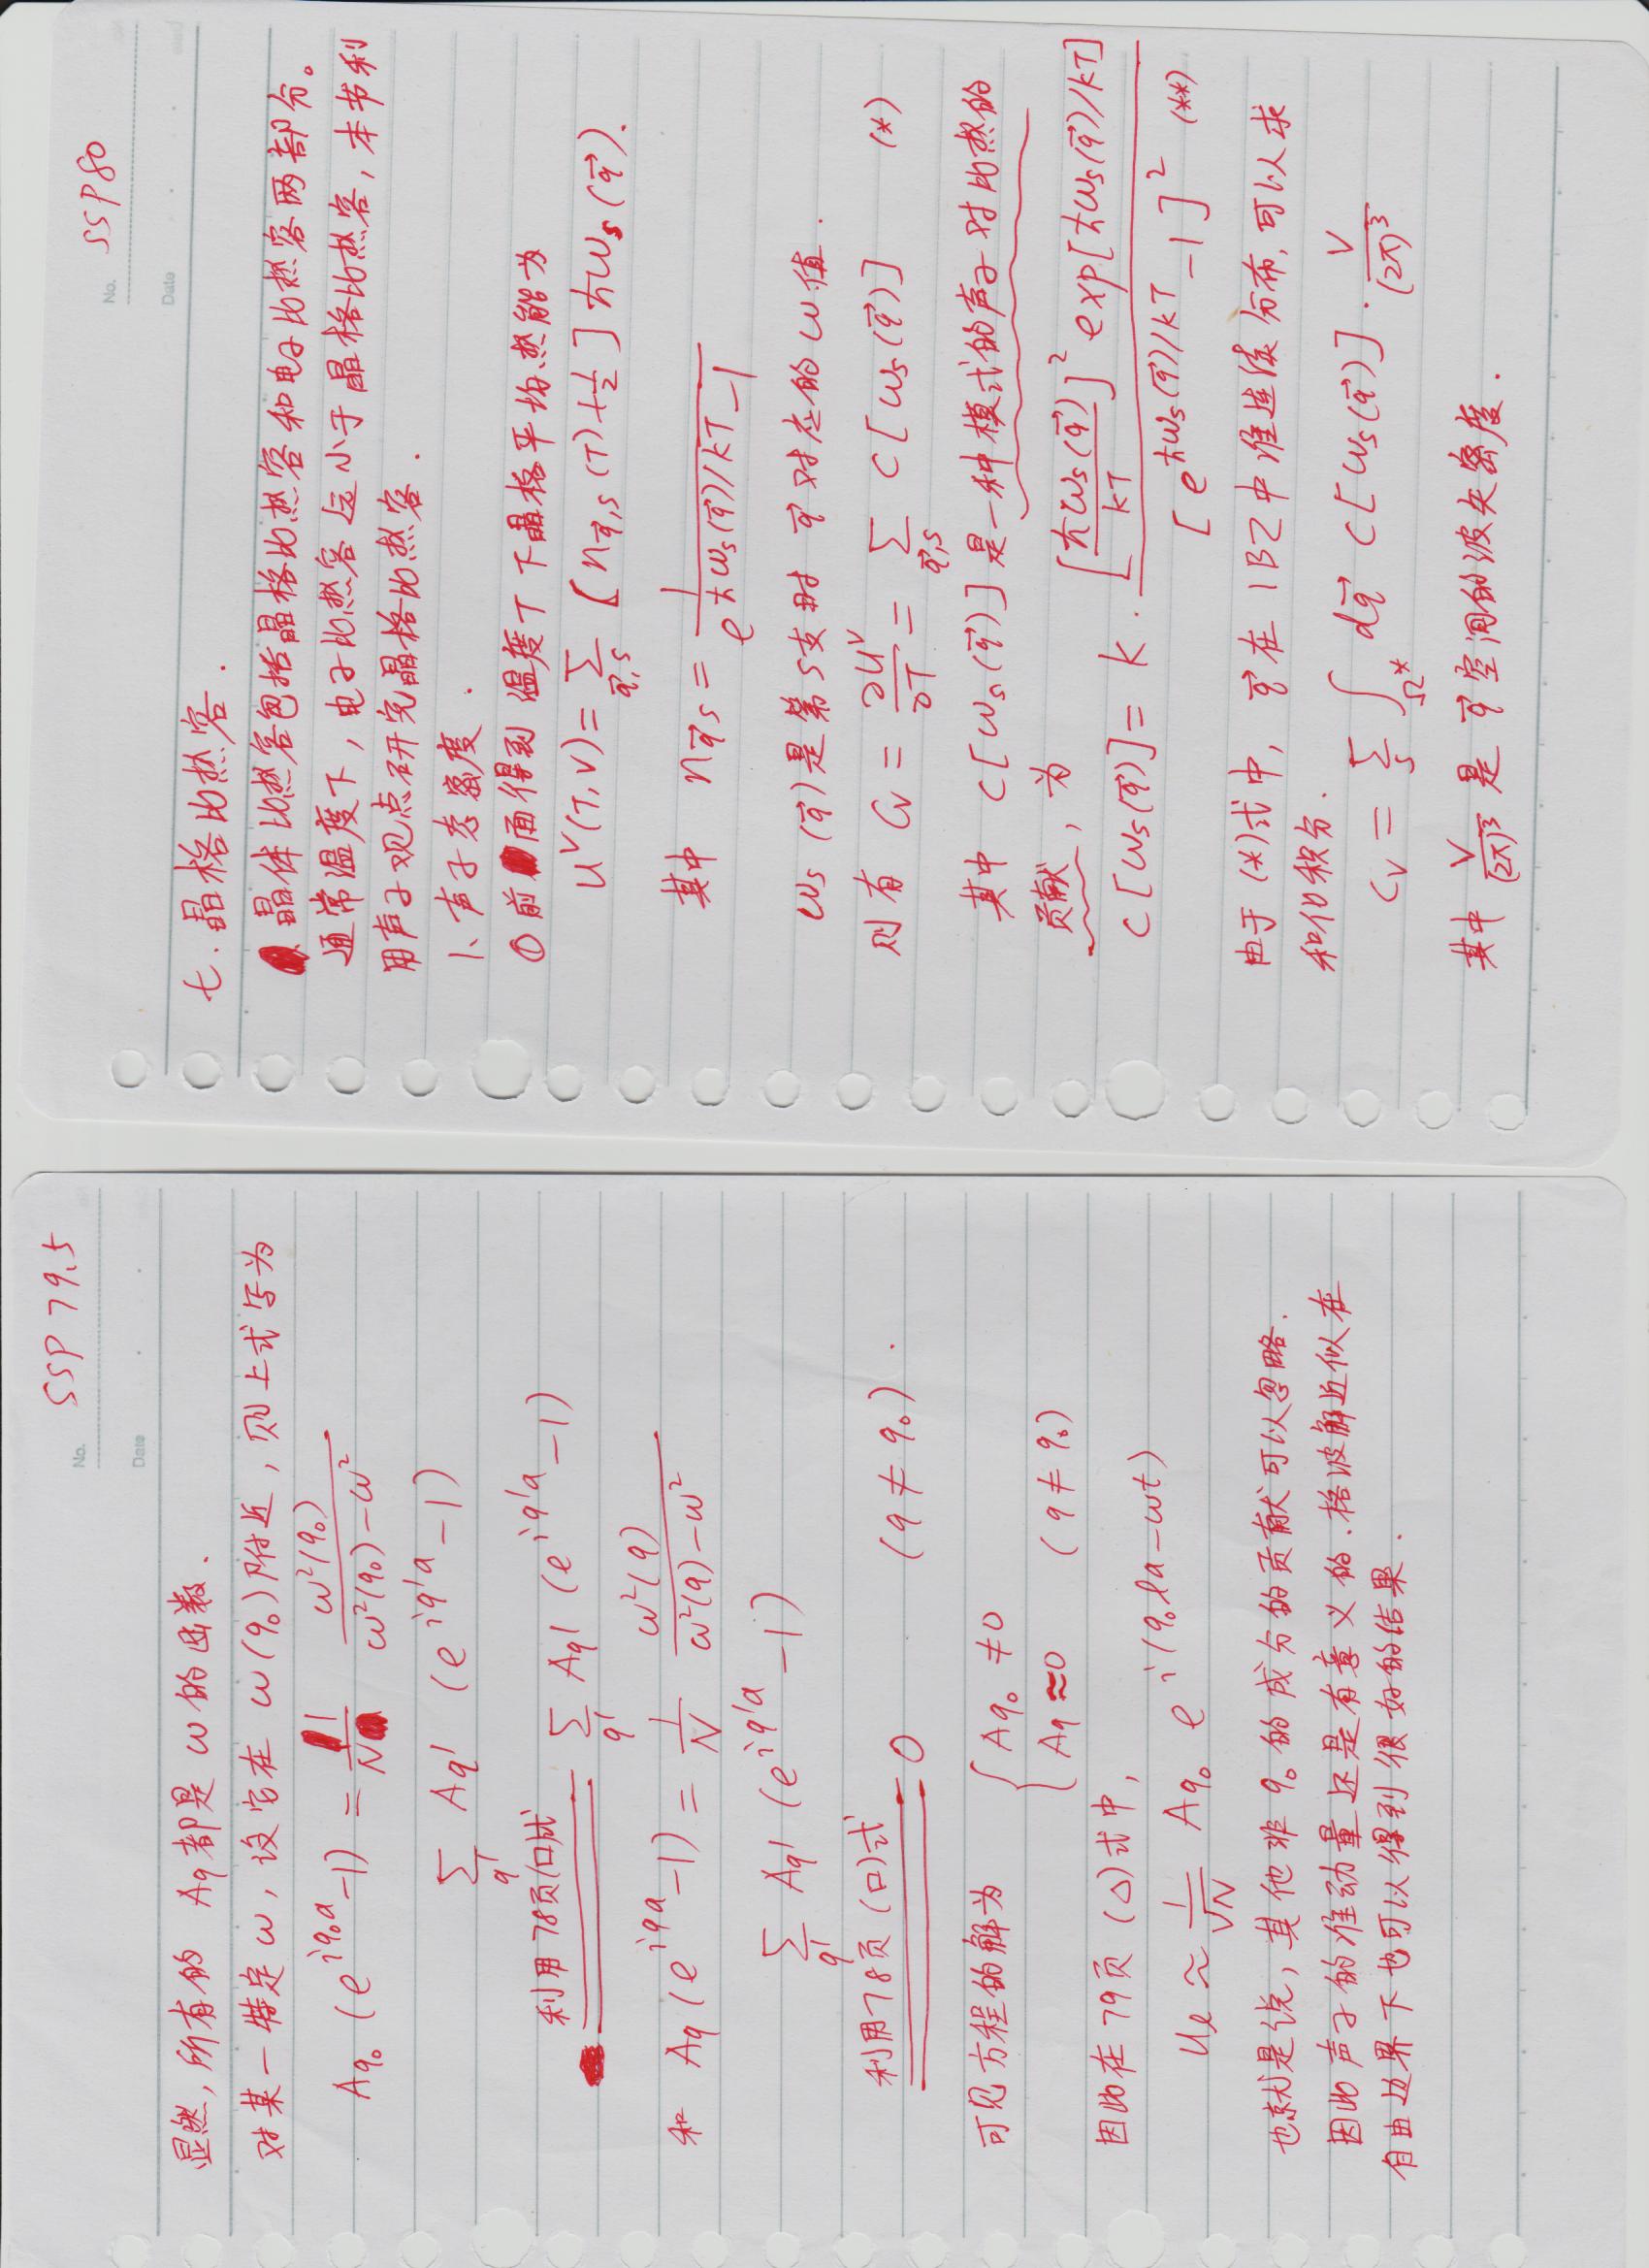 No. SSP 79.5
Date
显然, 所有的 Aq 都是 ω 的函数.
对某一特定 ω, 设它在 ω(q₀) 附近, 则上式写为
A_{q₀} (e^{iq₀a} - 1) = \frac{1}{N} \frac{ω²(q₀)}{ω²(q₀) - ω²}
\sum_{q'} A_{q'} (e^{iq'a} - 1)
利用78页(口)式 \sum_{q'} A_{q'} (e^{iq'a} - 1)
和 A_q (e^{iqa} - 1) = \frac{1}{N} \frac{ω²(q)}{ω²(q) - ω²}
\sum_{q'} A_{q'} (e^{iq'a} - 1)
利用78页(口)式 0 (q ≠ q₀).
可见方程的解为 { A_{q₀} ≠ 0
A_q ≈ 0 (q ≠ q₀)
因此在79页 (△) 式中,
u_ℓ ≈ \frac{1}{\sqrt{N}} A_{q₀} e^{i(q₀ℓa - ωt)}
也就是说, 其他非 q₀ 的成分的贡献可以忽略.
因此声子的准动量还是有意义的. 格波解近似在
自由边界下也可以得到很好的结果.
No. SSP80
Date
七. 晶格比热容.
晶体比热容包括晶格比热容和电子比热容两部分。
通常温度下, 电子比热容远小于晶格比热容, 本书利
用声子观点研究晶格比热容.
1、声子态密度.
① 前面得到温度T下晶格平均热能为
U^V(T,V) = \sum_{\vec{q},s} [n_{\vec{q},s}(T) + \frac{1}{2}] ħω_s(\vec{q}).
其中 n_{\vec{q}s} = \frac{1}{e^{ħω_s(\vec{q})/kT} - 1}
ω_s(\vec{q}) 是第S支时 \vec{q} 对应的 ω 值.
则有 C_V = \frac{∂U^V}{∂T} = \sum_{\vec{q},s} C[ω_s(\vec{q})] (*)
其中 C[ω_s(\vec{q})] 是一种模式的声子对比热的
贡献, 为
C[ω_s(\vec{q})] = k · \frac{[\frac{ħω_s(\vec{q})}{kT}]² exp[ħω_s(\vec{q})/kT]}{[e^{ħω_s(\vec{q})/kT} - 1]²} (**)
由于 (*)式中, \vec{q} 在 1BZ 中准连续分布, 可以求
和化积分.
C_V = \sum_s \int_{Ω^*} d\vec{q} C[ω_s(\vec{q})] · \frac{V}{(2π)^3}
其中 \frac{V}{(2π)^3} 是 \vec{q} 空间的波矢密度.